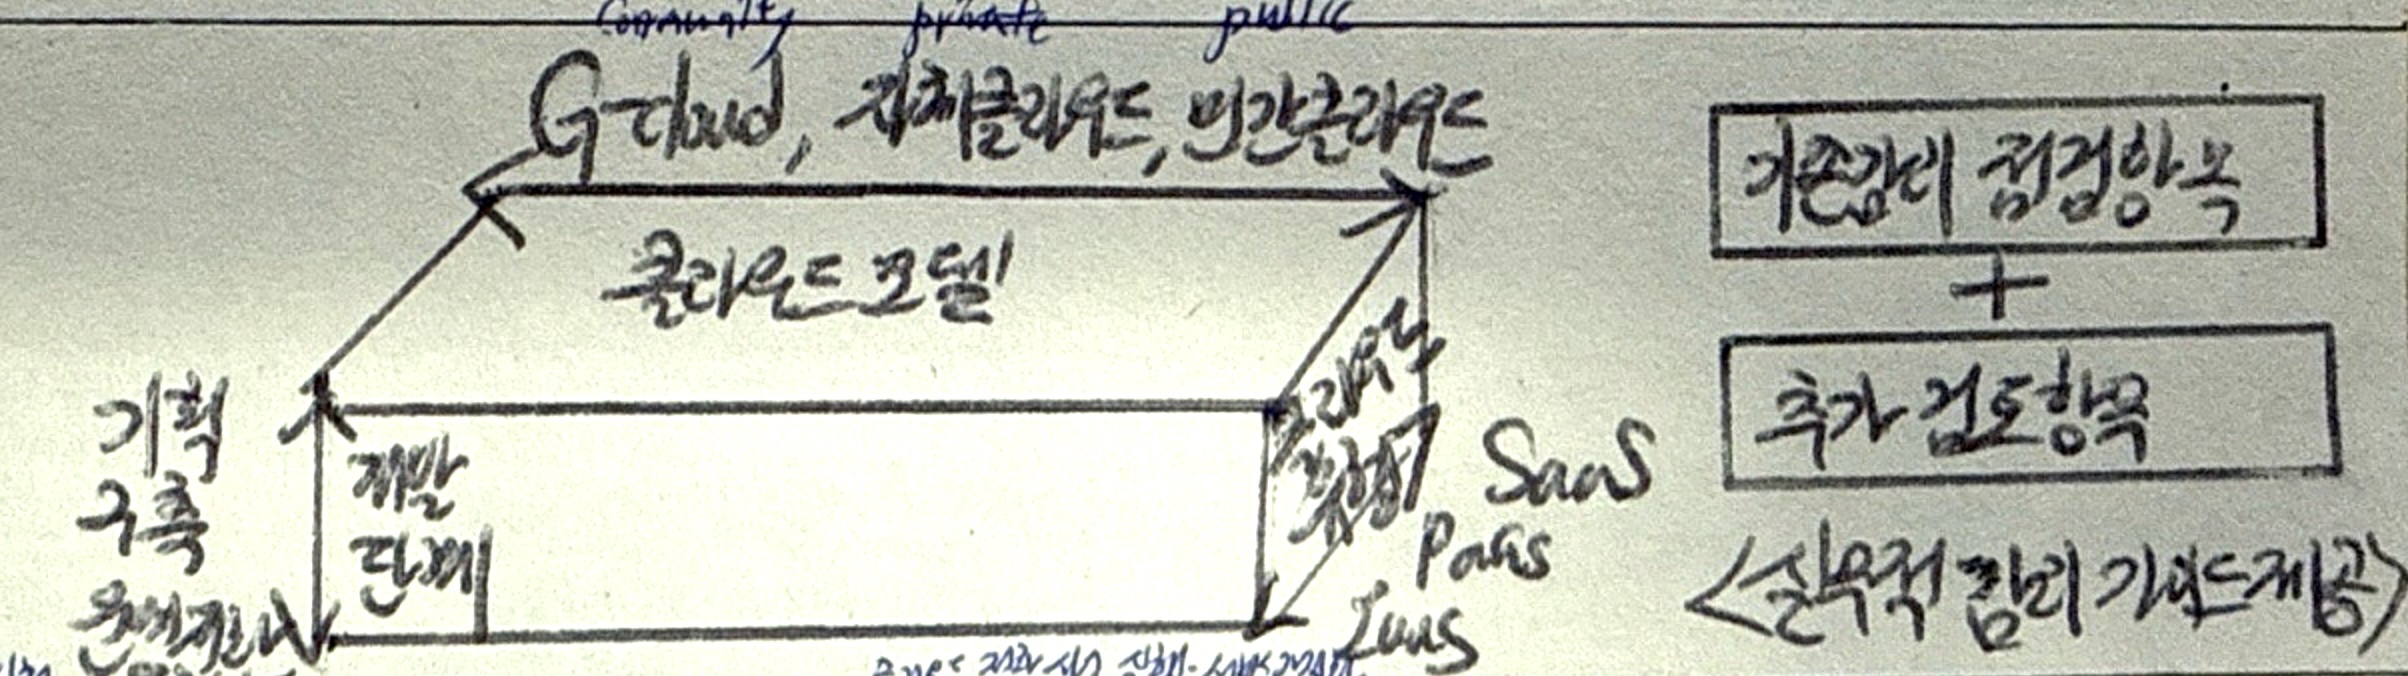 Community private public
G-cloud, 자체클라우드, 민간클라우드
클라우드 모델
기획
구축
개발
단계
클라우드
유형
SaaS
PaaS
IaaS
기존감리 점검항목
+
추가 검토항목
<실무적 감리 가이드 제공>